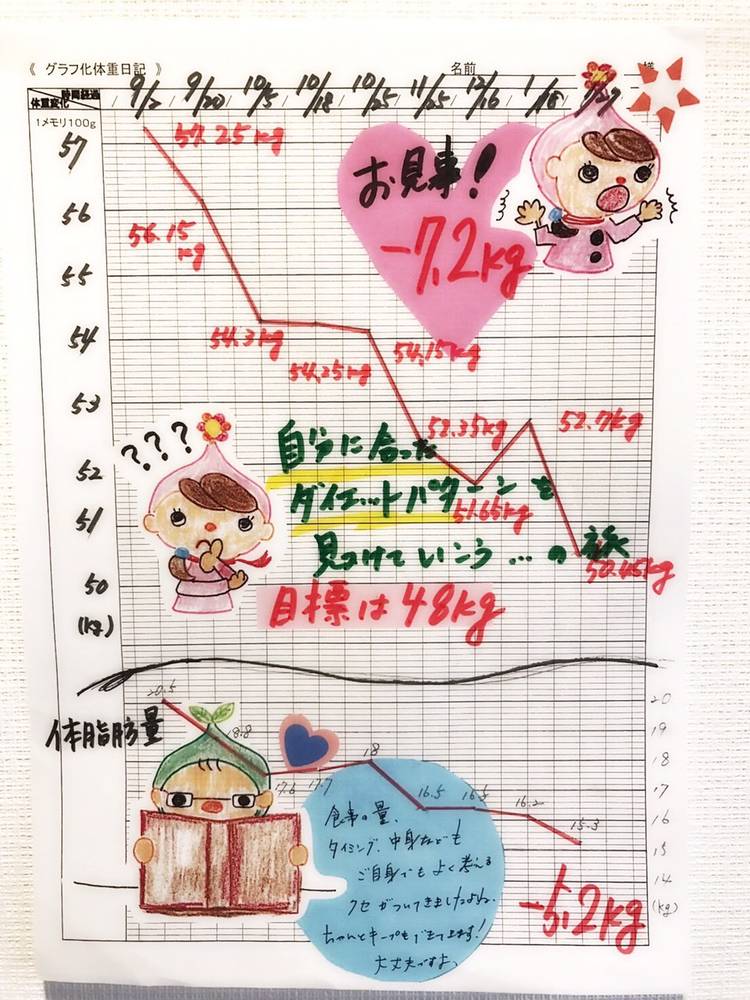 《 グラフ化体重日記 》 名前 様
時間経過
体重変化
9/2 9/20 10/5 10/18 10/25 11/25 12/16 1/18 1/27
1メモリ100g
57
56
55
54
53
52
51
50
(kg)
57.25kg
56.15
kg
54.3kg
54.25kg
54.15kg
52.35kg
51.65kg
52.7kg
50.45kg
お見事!
-7.2kg
???
自分に合った
ダイエットパターンを
見つけていこう…の旅
目標は48kg
体脂肪量
20.5
18.8
17.6
17.7
18
16.5
16.5
16.2
15.3
20
19
18
17
16
15
14
(kg)
食事の量、
タイミング、中身なども
ご自身でもよく考える
クセがついてきましたよね。
ちゃんとキープもできてます!
大丈夫ですよ。
-5.2kg